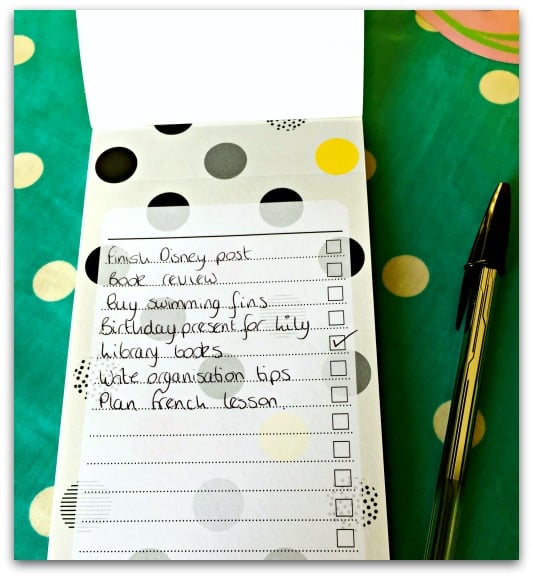 Finish Disney post
Book review
Buy swimming fins
Birthday present for Lily
Library books
Write organisation tips
Plan French lesson